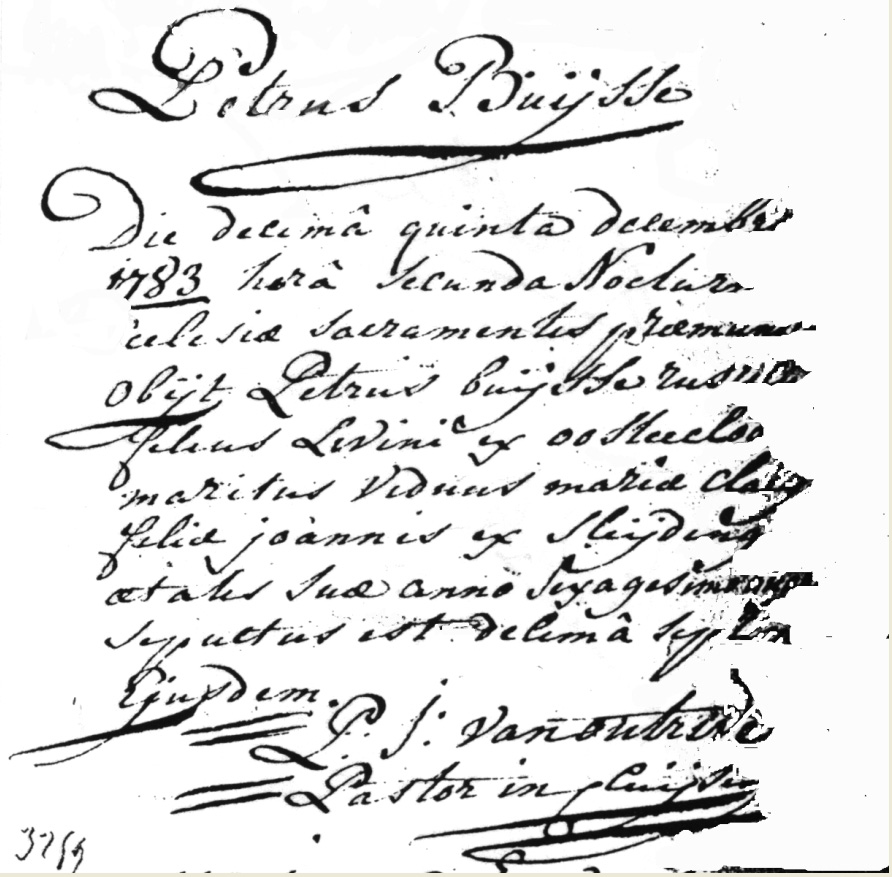 Petrus Buijsse
Die decimâ quinta decembris
1783 horâ secunda Nocturn
ecclesiæ sacramentis præmuni
obijt Petrus buijsse
filius Levini ex oosteecloo
maritus viduus mariæ
filiæ joannis ex sleijdin
ætatis suæ anno sexagesimo
sepultus est decimâ
Ejusdem.
P. J. van outrive
Pastor in Sluijse
3299